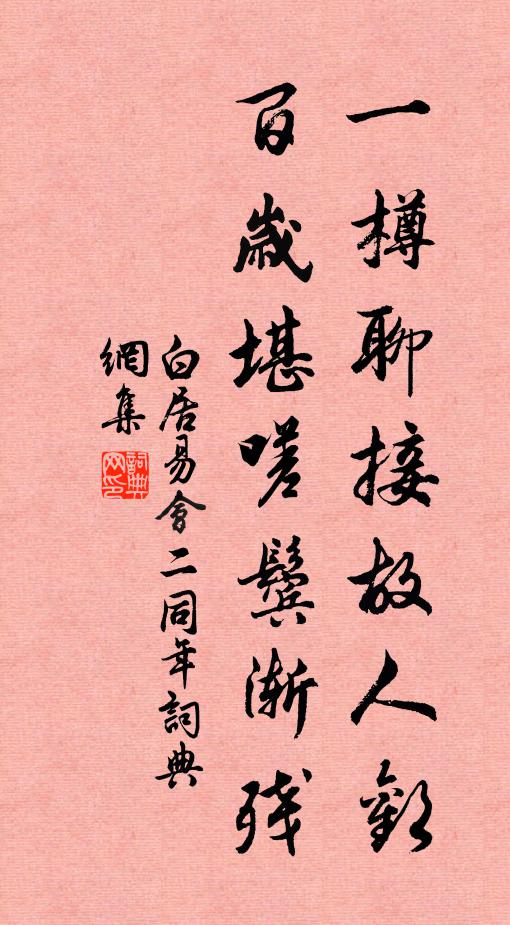 一樽聊接故人歡
百歲堪嗟鬢漸殘
白居易會二同年詞典
網集
詞典网印